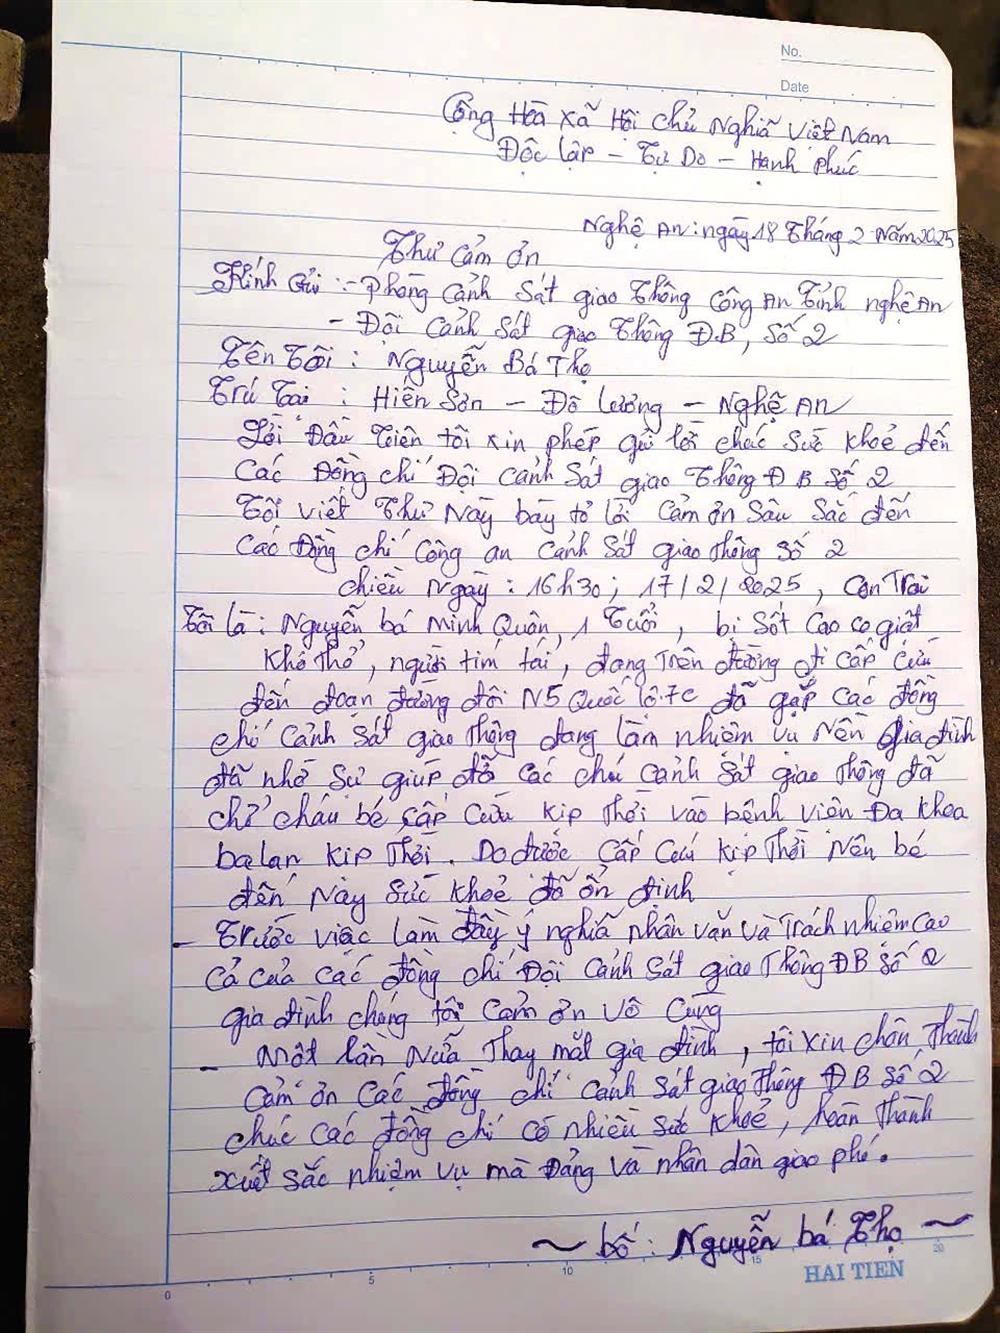 No.
Date
Cộng Hòa xã Hội chủ Nghĩa Việt Nam
Độc lập - Tự Do - Hạnh phúc
Nghệ An: ngày 18 Tháng 2 Năm 2025
Thư cảm ơn
Kính Gửi :- phòng cảnh sát giao thông công An Tỉnh nghệ An
- Đội cảnh sát giao thông Đ.B, số 2
Tên Tôi : Nguyễn Bá Thọ
Trú Tại : Hiến Sơn - Đô Lương - Nghệ An
Lời Đầu Tiên tôi xin phép gửi lời chúc sức khoẻ đến
các Đồng chí Đội cảnh sát giao thông Đ B số 2
Tôi viết Thư Này bày tỏ lời cảm ơn sâu sắc đến
các đồng chí công an cảnh sát giao thông số 2
chiều Ngày : 16h30 ; 17/2/2025 , Con Trai
Tôi là : Nguyễn bá Minh Quân, 1 Tuổi , bị sốt cao co giật
khó thở , người tím tái , đang Trên đường đi cấp cứu
đến đoạn đường đôi N5 Quốc lộ 7c đã gặp các đồng
chí cảnh sát giao thông đang làm nhiệm vụ Nên gia đình
đã nhờ sự giúp đỡ các chú cảnh sát giao thông đã
chở cháu bé cấp cứu kịp Thời vào bệnh viện Đa khoa
ba lan kịp Thời. Do được cấp cứu kịp Thời Nên bé
đến Này sức khoẻ đã ổn định
- Trước việc làm đầy ý nghĩa nhân văn và Trách nhiệm cao
cả của các đồng chí Đội cảnh sát giao thông ĐB số 2
gia đình chúng tôi cảm ơn vô cùng
- Một lần Nữa Thay mặt gia đình , tôi xin chân Thành
cảm ơn các đồng chí cảnh sát giao thông ĐB số 2
chúc các đồng chí có nhiều sức khoẻ, hoàn Thành
xuất sắc nhiệm vụ mà Đảng và nhân dân giao phó.
~ bố : Nguyễn bá Thọ ~
0 5 10 15 20
HAI TIEN